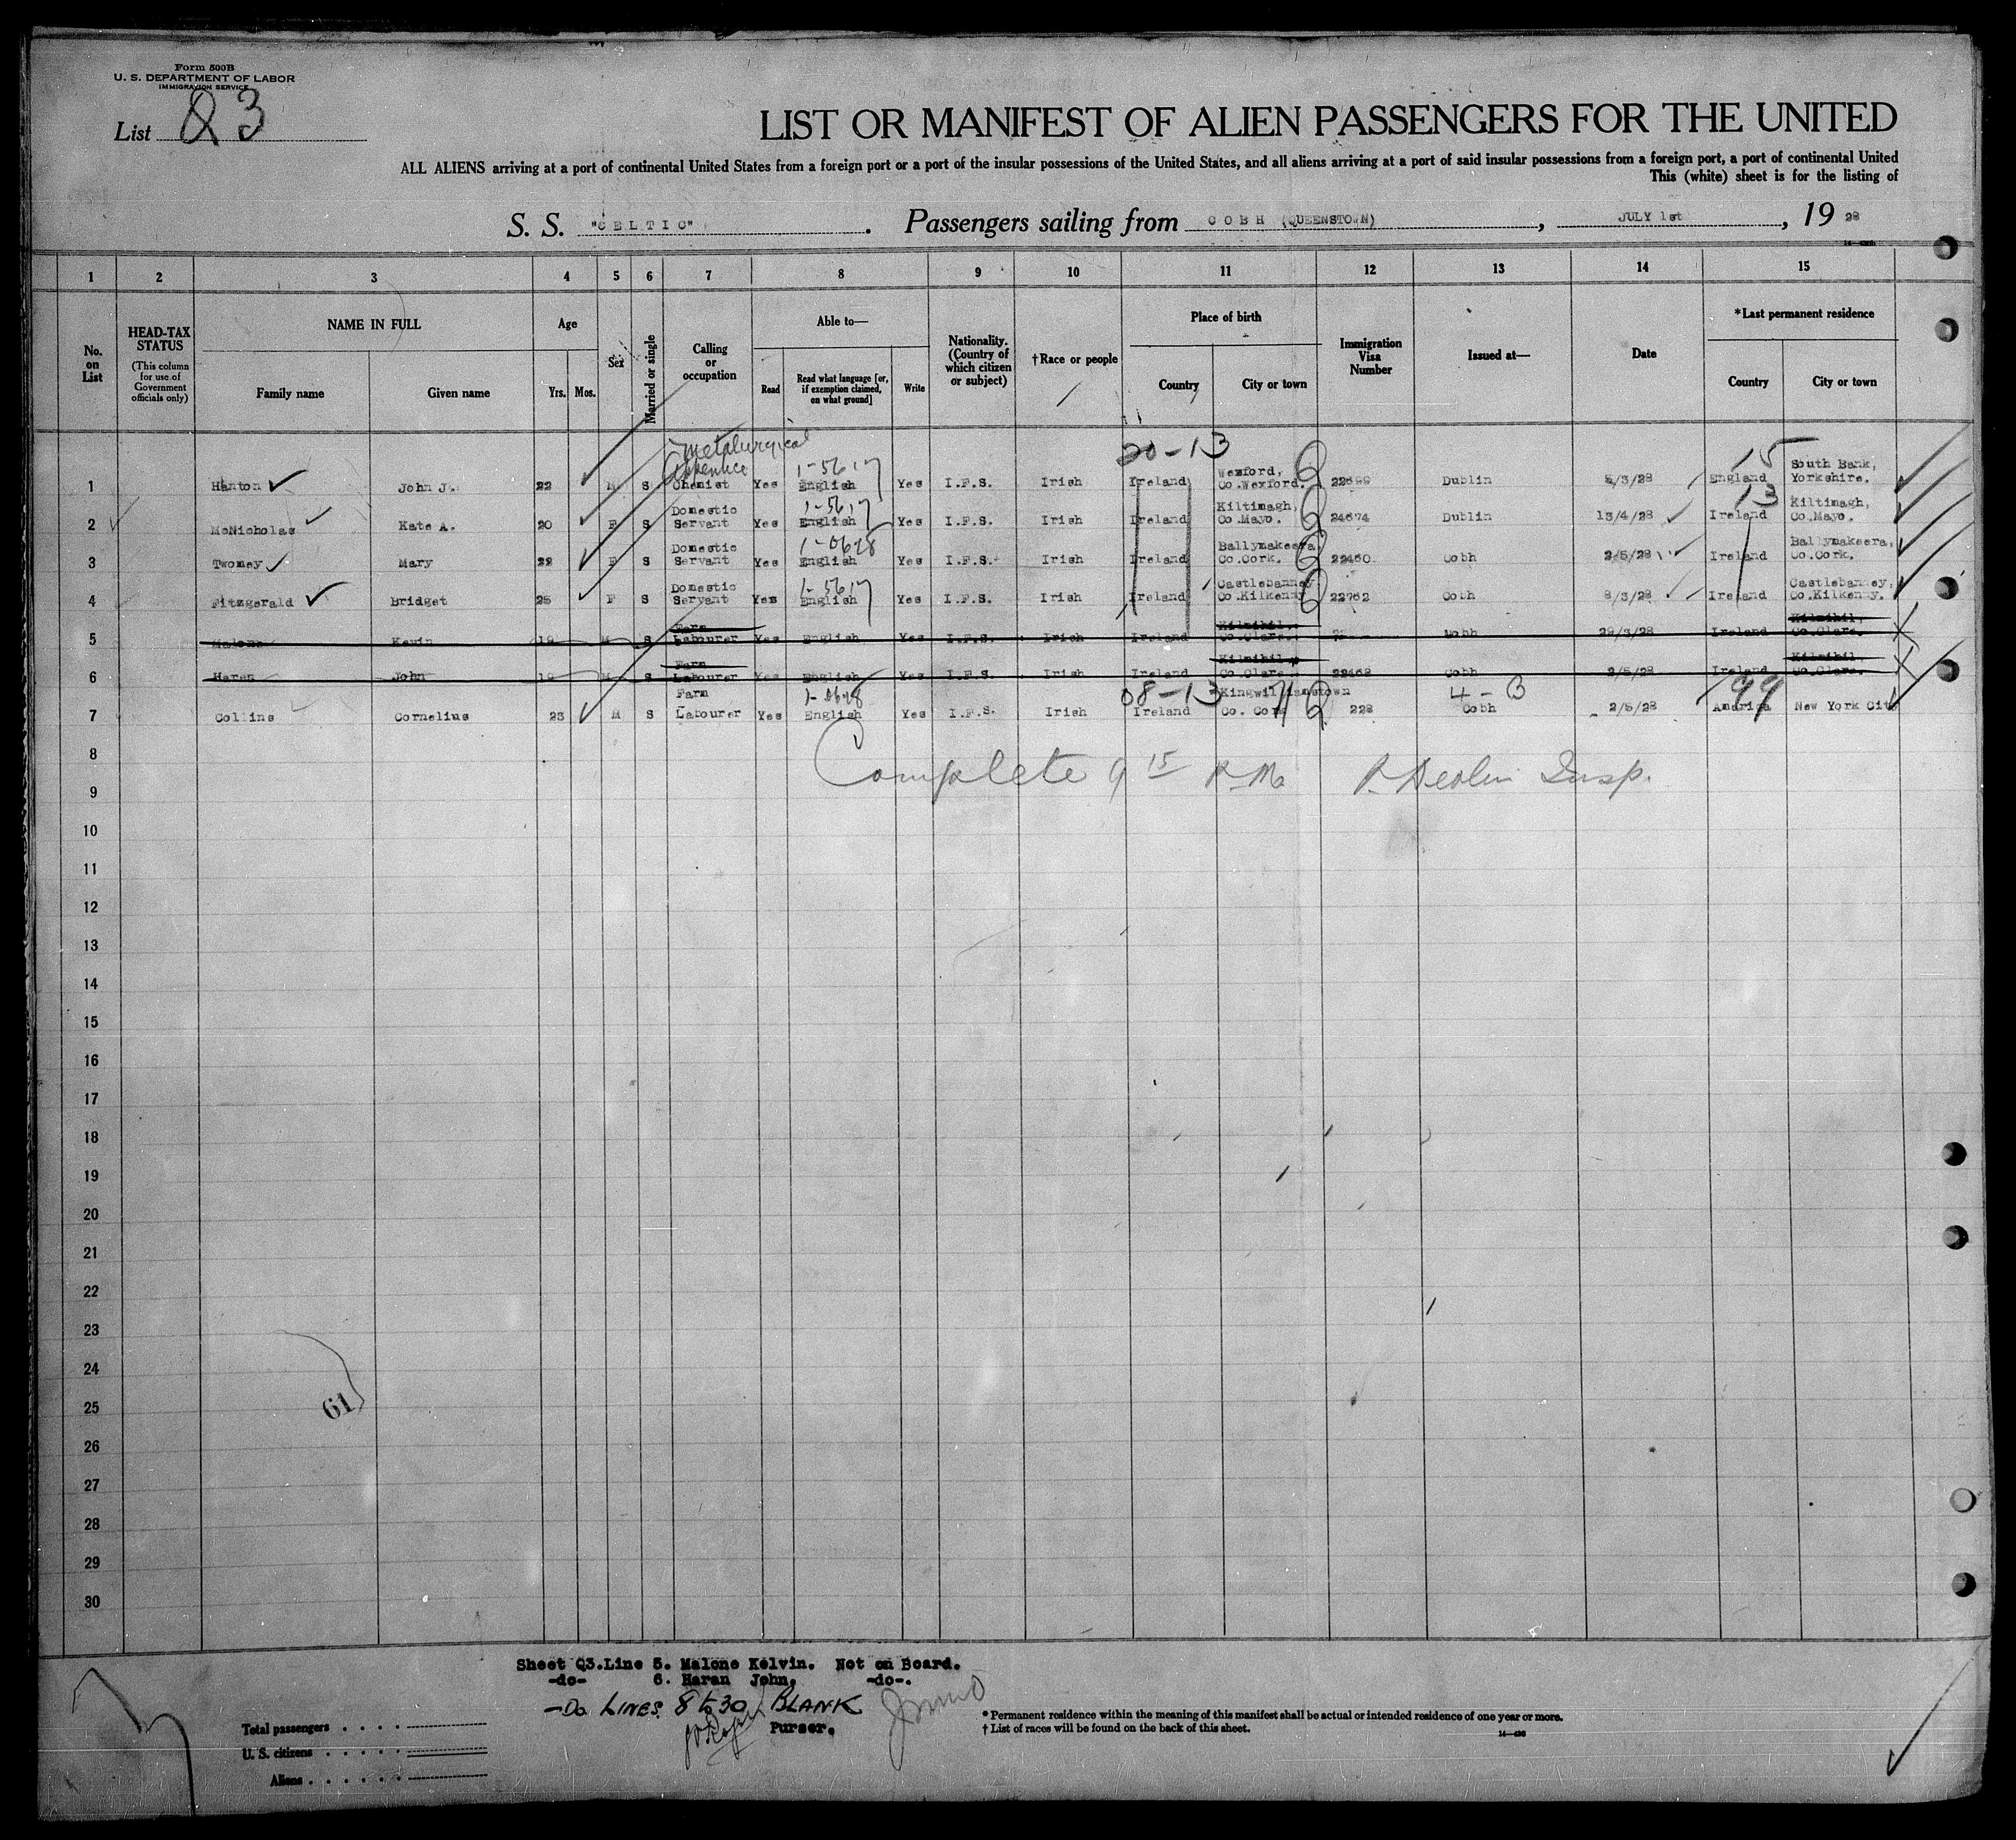 Form 500B
U. S. DEPARTMENT OF LABOR
IMMIGRATION SERVICE
List Q3
LIST OR MANIFEST OF ALIEN PASSENGERS FOR THE UNITED
ALL ALIENS arriving at a port of continental United States from a foreign port or a port of the insular possessions of the United States, and all aliens arriving at a port of said insular possessions from a foreign port, a port of continental United
This (white) sheet is for the listing of
S. S. "CELTIC". Passengers sailing from COBH (QUEENSTOWN), JULY 1st, 19 28
1 2 3 4 5 6 7 8 9 10 11 12 13 14 15
No. on List
HEAD-TAX STATUS
(This column for use of Government officials only)
NAME IN FULL
Family name Given name
Age
Yrs. Mos.
Sex
Married or single
Calling or occupation
Able to—
Read
Read what language [or, if exemption claimed, on what ground]
Write
Nationality. (Country of which citizen or subject)
†Race or people
Place of birth
Country City or town
Immigration Visa Number
Issued at—
Date
*Last permanent residence
Country City or town
Metalurgical 20-13 15
Apprentice 1-5617 Wexford, South Bank,
1 Hanton John J. 22 M S Chemist Yes English Yes I.F.S. Irish Ireland Co.Wexford. 22699 Dublin 5/3/28 England Yorkshire.
Domestic 1-5617 Kiltimagh, 13 Kiltimagh,
2 McNicholas Kate A. 20 F S Servant Yes English Yes I.F.S. Irish Ireland Co.Mayo. 24674 Dublin 13/4/28 Ireland Co.Mayo.
Domestic 1-0628 Ballymakeera, Ballymakeera,
3 Twomey Mary 22 F S Servant Yes English Yes I.F.S. Irish Ireland Co.Cork. 22460 Cobh 2/5/28 Ireland Co.Cork.
Domestic 1-5617 Castlebanney, Castlebanney,
4 Fitzgerald Bridget 25 F S Servant Yes English Yes I.F.S. Irish Ireland Co.Kilkenny 22762 Cobh 8/3/28 Ireland Co.Kilkenny.
Farm Kilmihil, Kilmihil,
5 Malone Kevin 19 M S Labourer Yes English Yes I.F.S. Irish Ireland Co.Clare. Cobh 29/3/28 Ireland Co.Clare.
Farm Kilmihil, Kilmihil,
6 Haran John 19 M S Labourer Yes English Yes I.F.S. Irish Ireland Co.Clare. 22468 Cobh 2/5/28 Ireland Co.Clare.
Farm 1-0628 08-13 Kingwilliamstown 4-3 99
7 Collins Cornelius 23 M S Labourer Yes English Yes I.F.S. Irish Ireland Co. Cork 228 Cobh 2/5/28 America New York City
8 Complete 9 15 P.M. P. Devlin Insp.
9
10
11
12
13
14
15
16
17
18
19
20
21
22
23
24
25 61
26
27
28
29
30
Sheet Q3.Line 5. Malone Kelvin. Not on Board.
-do- 6. Haran John. -do-.
-Do LINES 8 to 30 BLANK
Purser.
Total passengers
U. S. citizens
Aliens
* Permanent residence within the meaning of this manifest shall be actual or intended residence of one year or more.
† List of races will be found on the back of this sheet.